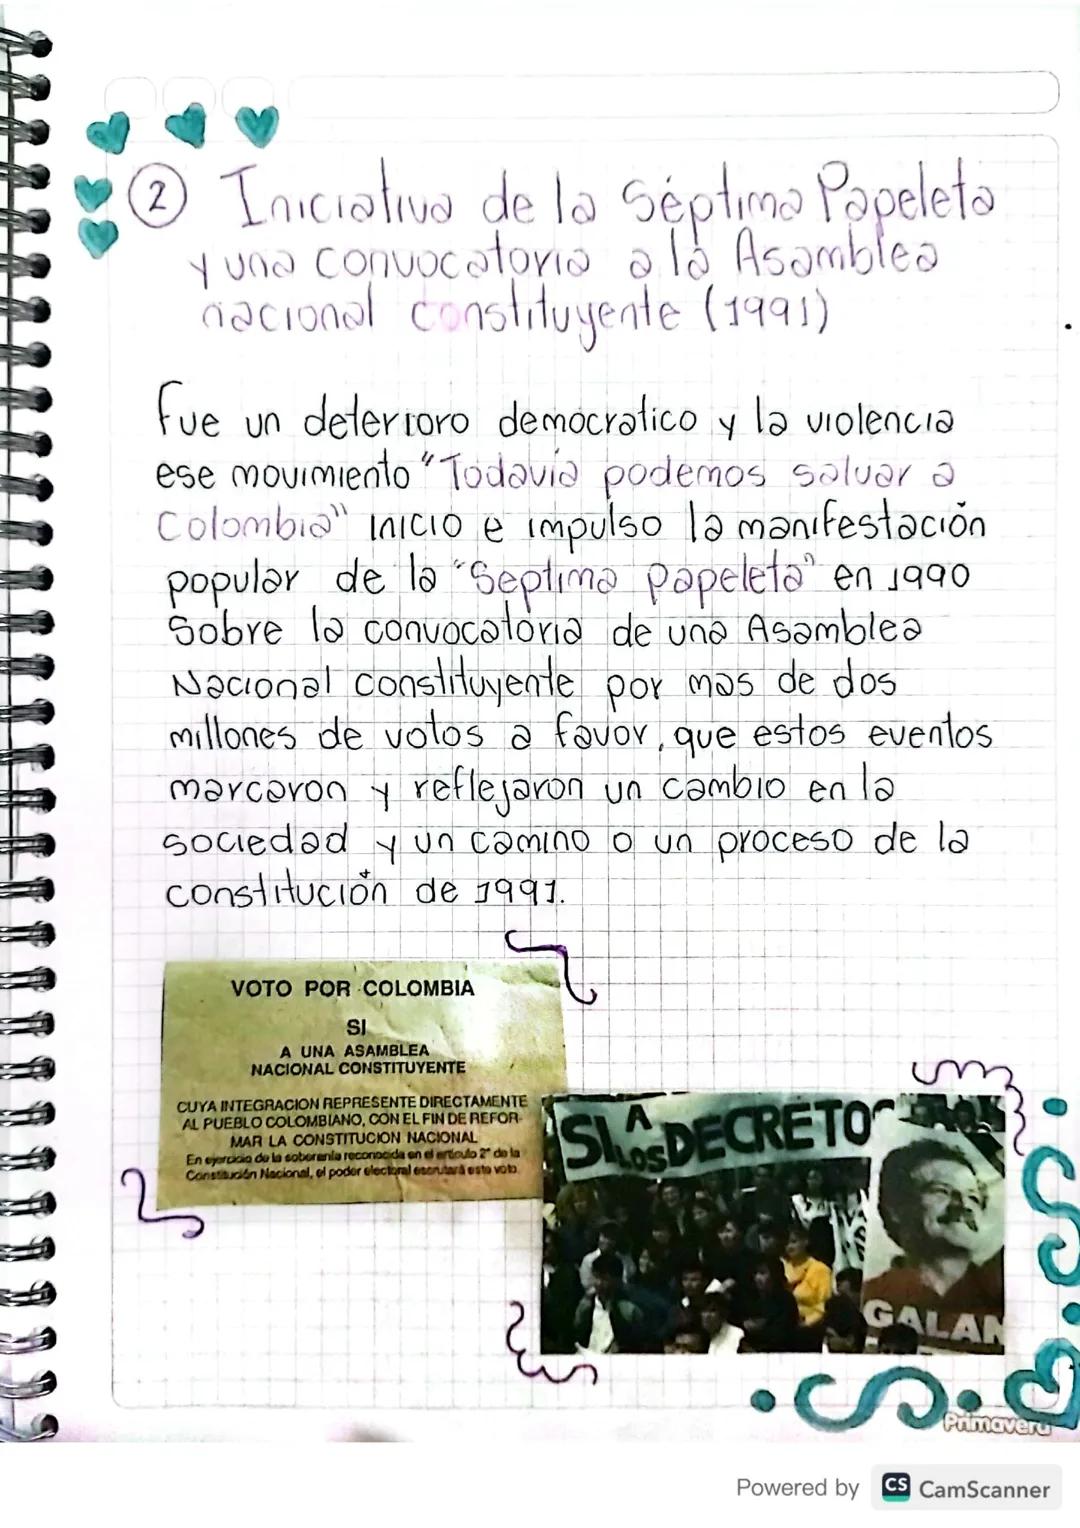 2 Iniciativa de la Séptima Papeleta
y una convocatoria a la Asamblea
nacional constituyente (1991)
Fue un deterioro democratico y la violencia
ese movimiento "Todavía podemos salvar a
Colombia" inicio e impulso la manifestación
popular de la "Septima papeleta" en 1990
Sobre la convocatoria de una Asamblea
Nacional constituyente por mas de dos
millones de votos a favor, que estos eventos
marcaron y reflejaron un cambio en la
sociedad y un camino o un proceso de la
constitución de 1991.
VOTO POR COLOMBIA
SI
A UNA ASAMBLEA
NACIONAL CONSTITUYENTE
CUYA INTEGRACION REPRESENTE DIRECTAMENTE
AL PUEBLO COLOMBIANO, CON EL FIN DE REFOR-
MAR LA CONSTITUCION NACIONAL
En ejercicio de la soberanía reconocida en el artículo 2º de la
Constitución Nacional, el poder electoral escrutará este voto.
SI A LOS DECRETOS
GALAN
Primavera
Powered by CS CamScanner